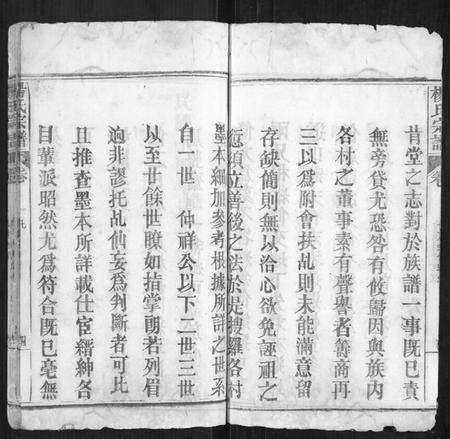 楊氏宗譜 卷
肯堂之志對於族譜一事既已責
無旁貸尤恐咎有攸歸因與族内
各村之董事素有聲譽者籌商再
三以爲附會扶乩則未能滿意留
存缺簡則無以洽心欲免誣祖之
愆須立善後之法於是搜羅各村
墨本細加參考根據所詳之世系
自一世 仲祥公以下二世三世
以至廿餘世瞭如指掌朗若列眉
迥非謬托乩仙妄爲判斷者可比
且推查墨本所詳載仕宦縉紳各
目輩派昭然尤爲符合既已毫無
楊氏宗譜 卷